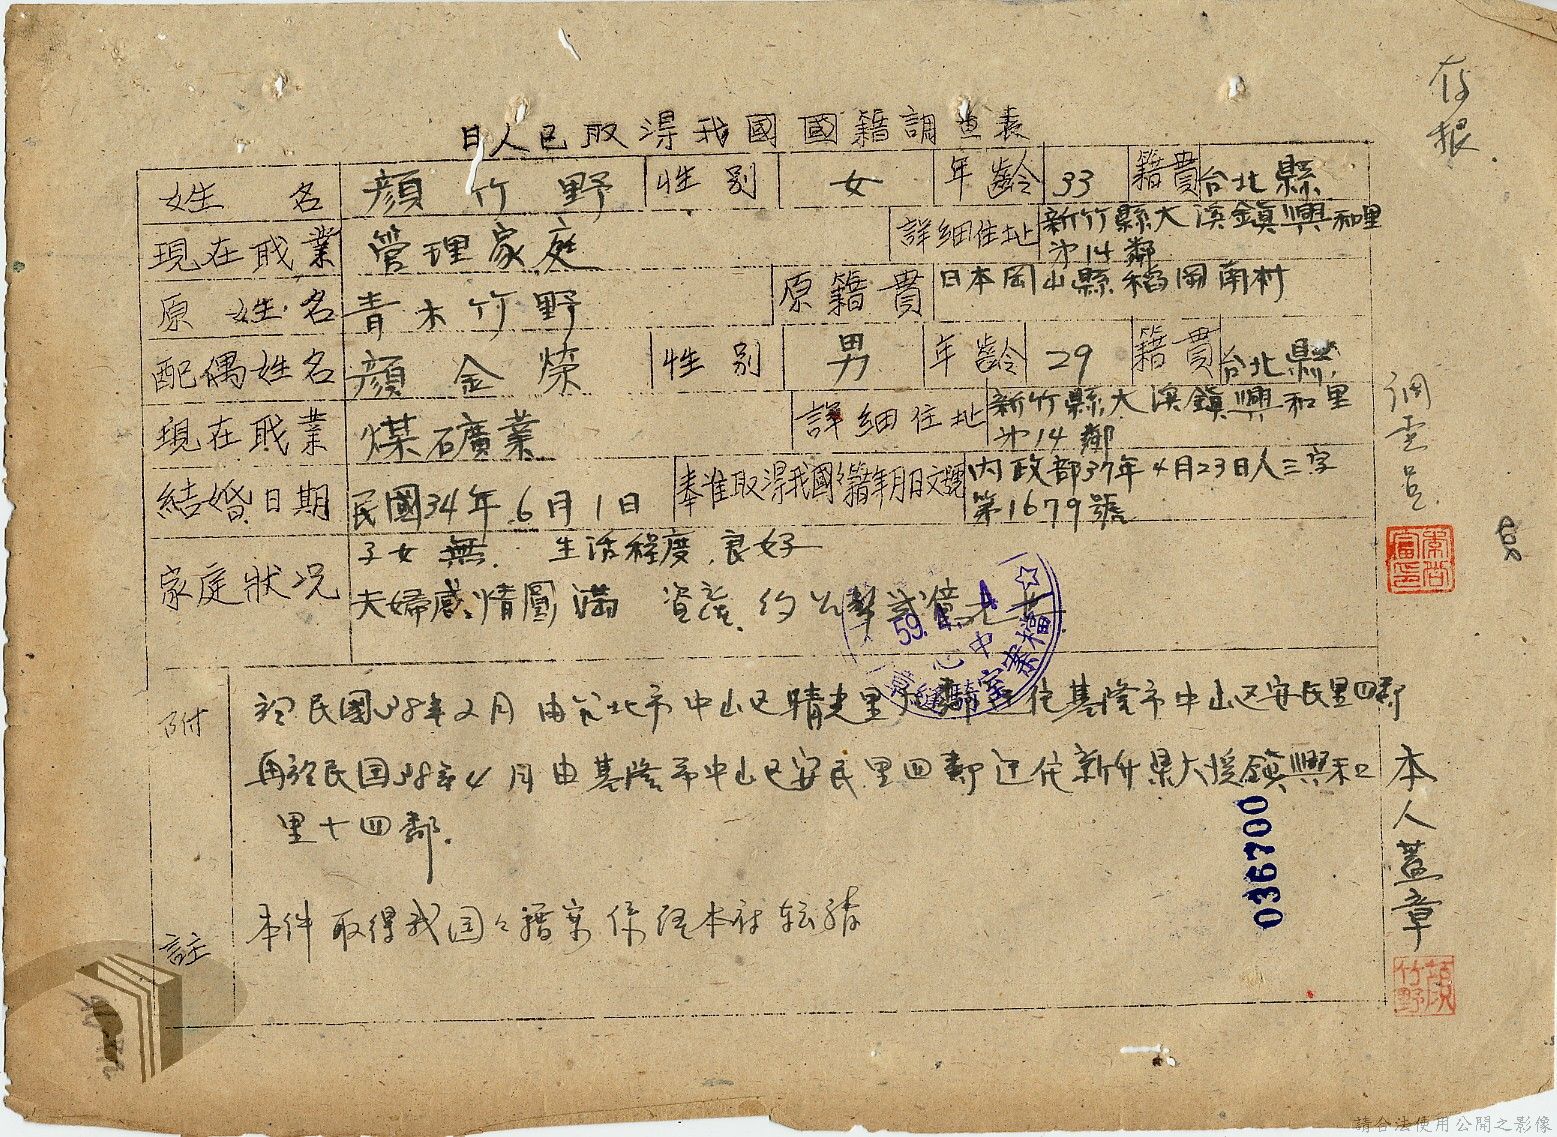 存根
日人已取得我國國籍調查表
姓名 顏竹野 性別 女 年齡 33 籍貫 台北縣
現在職業 管理家庭 詳細住址 新竹縣大溪鎮興和里
第14鄰
原姓名 青木竹野 原籍貫 日本岡山縣稻岡南村
配偶姓名 顏金榮 性別 男 年齡 29 籍貫 台北縣
現在職業 煤礦業 詳細住址 新竹縣大溪鎮興和里
第14鄰
結婚日期 民國34年6月1日 奉准取得我國々籍年月日文號 內政部37年4月23日人三字
第1679號
家庭狀况 子女無. 生活程度良好
夫婦感情圓滿 資產約公弊弍億元
附註
於民國38年2月由台北市中山区晴光里 迁住基隆市中山区安民里四鄰
再於民国38年4月由基隆市中山区安民里四鄰迁住新竹県大溪鎮興和
里十四鄰.
本件取得我国々籍案係經本社転請
調查員
本人蓋章
顏竹野
59. 4. 4
檔案室
中心
036700
請合法使用公開之影像